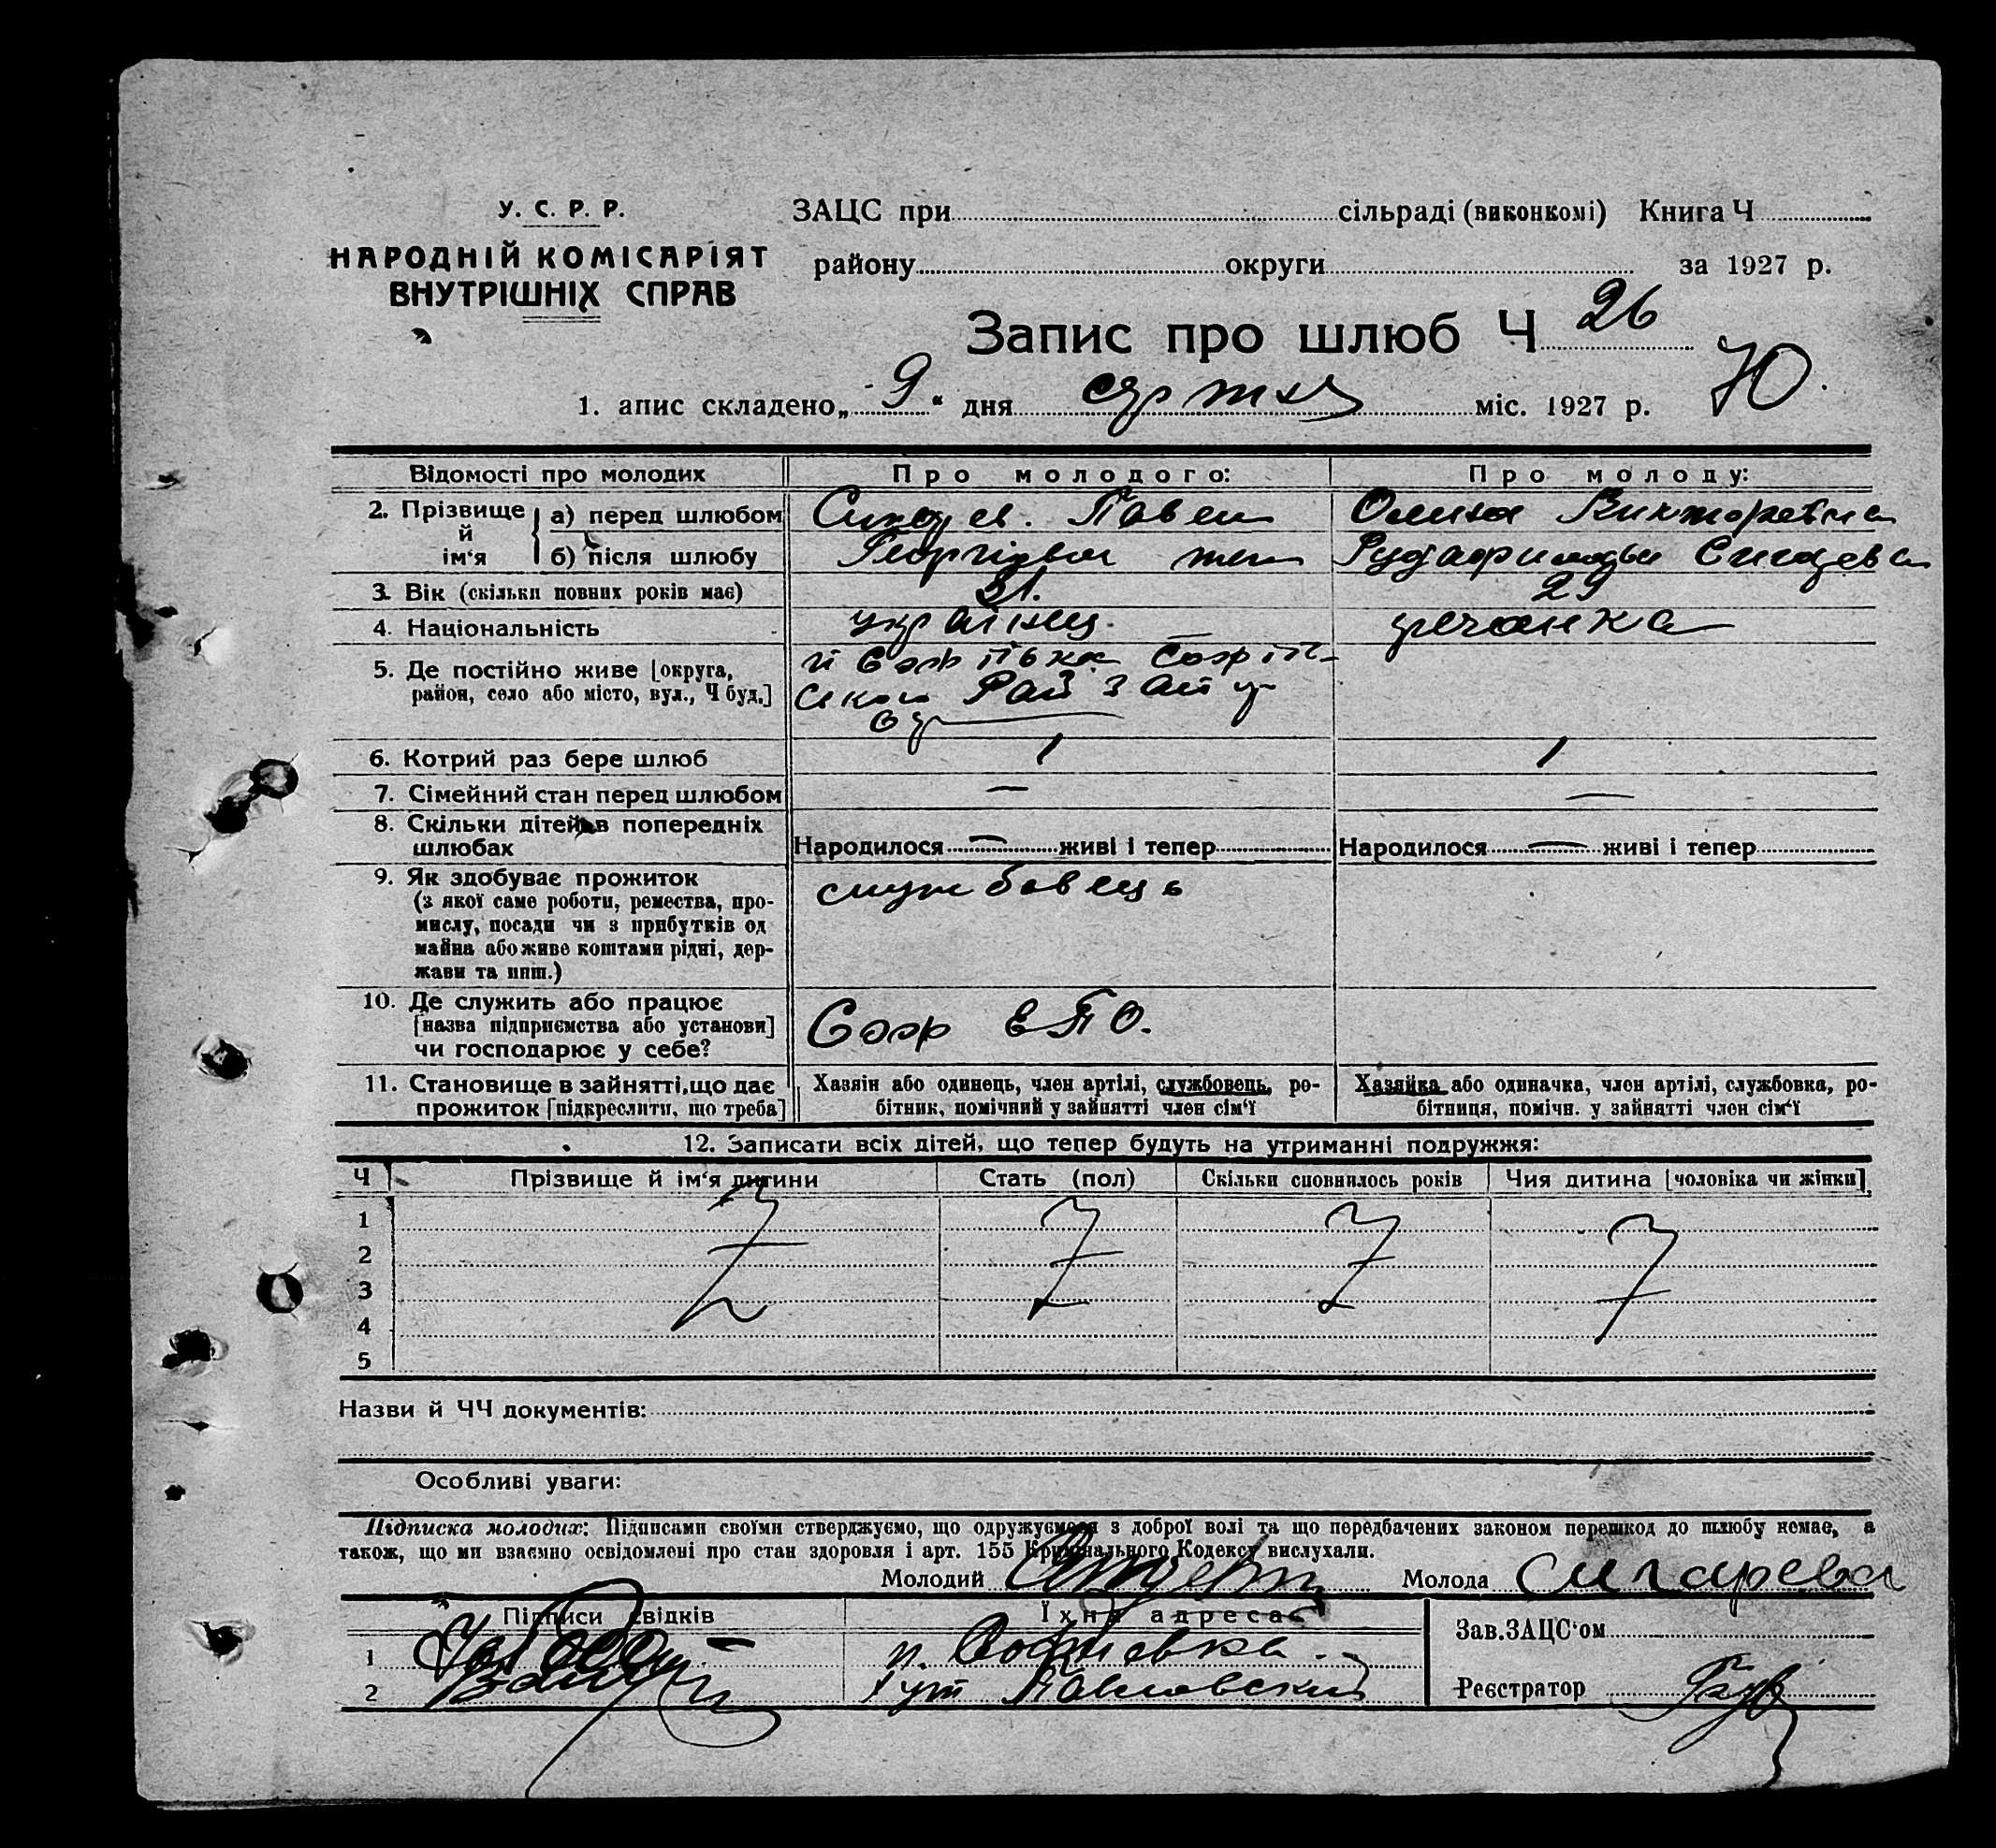 У. С. Р. Р.
НАРОДНІЙ КОМІСАРІЯТ
ВНУТРІШНІХ СПРАВ
ЗАЦС при сільраді (виконкомі) Книга Ч
району округи за 1927 р.
Запис про шлюб Ч 26
1. апис складено „ 9 “ дня міс. 1927 р. 70
Відомості про молодих Про молодого: Про молоду:
2. Прізвище й ім‘я
а) перед шлюбом Павел Викторевна
б) після шлюбу
3. Вік (скільки повних років має) 31. 29
4. Національність українец. гречанка
5. Де постійно живе [округа,
район, село або місто, вул., Ч буд.]
6. Котрий раз бере шлюб 1 1
7. Сімейний стан перед шлюбом — —
8. Скільки дітей в попередніх
шлюбах
Народилося — живі і тепер Народилося — живі і тепер
9. Як здобуває прожиток службовець
(з якої саме роботи, ремества, про-
мислу, посади чи з прибутків од
майна або живе коштами рідні, дер-
жави та инш.)
10. Де служить або працює
[назва підприємства або установи]
чи господарює у себе?
Соф ЕПО.
11. Становище в зайнятті, що дає
прожиток [підкреслити, що треба]
Хазяін або одинець, член артілі, службовець, ро-
бітник, помічний у зайнятті член сім‘ї
Хазяйка або одиначка, член артілі, службовка, ро-
бітниця, помічн. у зайнятті член сім‘ї
12. Записати всіх дітей, що тепер будуть на утриманні подружжя:
Ч Прізвище й ім‘я дитини Стать (пол) Скільки сповнилось років Чия дитина [чоловіка чи жінки]
1
2
3
4
5
Назви й ЧЧ документів:
Особливі уваги:
Підписка молодих: Підписами своїми стверджуємо, що одружуємося з доброї волі та що передбачених законом перешкод до шлюбу немає, а
також, що ми взаємно освідомлені про стан здоровля і арт. 155 Кримінального Кодексу вислухали.
Молодий Молода Сигарева
Підписи свідків Їхня адреса Зав. ЗАЦС‘ом
1 п. Софиевка
2 Хут Павловский Реєстратор